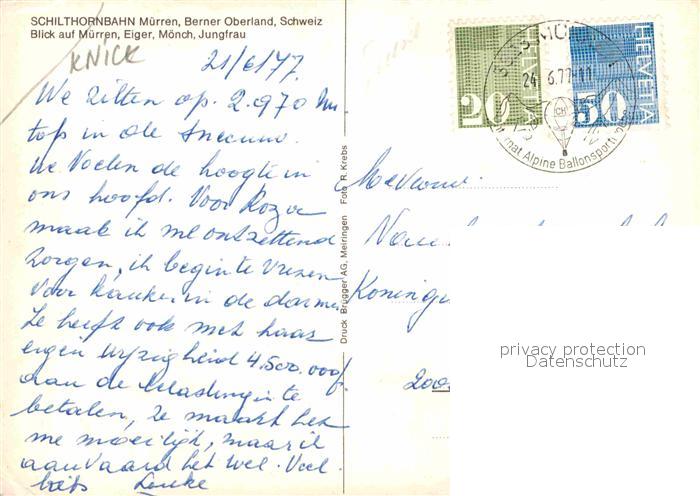 SCHILTHORNBAHN Mürren, Berner Oberland, Schweiz
Blick auf Mürren, Eiger, Mönch, Jungfrau
KNICK
21/6/77.
We zitten op 2.970 m
top in de sneeuw.
We voelen de hoogte in
ons hoofd. Voor
maak ik me ontzettend
zorgen, ik begin te vrezen
voor kanker in de darmen
Ze heeft ook met haar
eigen 4.500.000 f.
aan de Belasting in te
betalen, ze maakt het
me moeilijk, maar ik
aanvaard het wel. Veel
Druck Brügger AG, Meiringen Foto R. Krebs
HELVETIA
20
HELVETIA
50
24.6.77-11
CH
Internat Alpine Ballonsport
Mevrouw
Koningi
200
privacy protection
Datenschutz